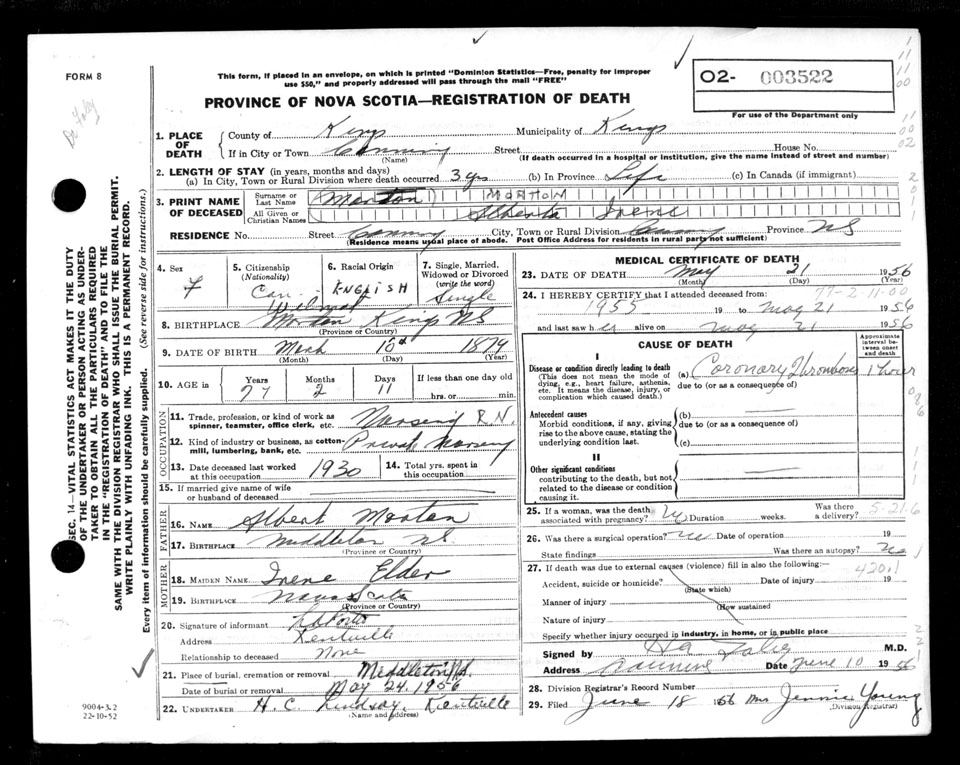 FORM 8
This form, if placed in an envelope, on which is printed "Dominion Statistics—Free, penalty for improper
use $50," and properly addressed will pass through the mail "FREE"
O2- 003522
For use of the Department only
PROVINCE OF NOVA SCOTIA—REGISTRATION OF DEATH
1. PLACE OF DEATH
County of Kings Municipality of Kings
If in City or Town Canning Street House No.
(Name) (If death occurred in a hospital or institution, give the name instead of street and number)
2. LENGTH OF STAY (in years, months and days)
(a) In City, Town or Rural Division where death occurred 3 yrs (b) In Province Life (c) In Canada (if immigrant)
3. PRINT NAME OF DECEASED
Surname or Last Name Morton MORTON
All Given or Christian Names Alberta Irene
RESIDENCE No. Street Canning City, Town or Rural Division Canning Province NS
(Residence means usual place of abode. Post Office Address for residents in rural parts not sufficient)
4. Sex F
5. Citizenship (Nationality) Can.
6. Racial Origin ENGLISH
7. Single, Married, Widowed or Divorced (write the word) Single
Wilmot
8. BIRTHPLACE Morton Kings NS
(Province or Country)
9. DATE OF BIRTH March 10th 1879
(Month) (Day) (Year)
10. AGE in Years 77 Months 2 Days 11 If less than one day old hrs. or min.
OCCUPATION
11. Trade, profession, or kind of work as spinner, teamster, office clerk, etc. Nursing R.N.
12. Kind of industry or business, as cotton-mill, lumbering, bank, etc. Private Nursing
13. Date deceased last worked at this occupation 1930
14. Total yrs. spent in this occupation
15. If married give name of wife or husband of deceased
FATHER
16. NAME Albert Morton
17. BIRTHPLACE Middleton NS.
(Province or Country)
MOTHER
18. MAIDEN NAME Irene Elder
19. BIRTHPLACE Nova Scotia
(Province or Country)
20. Signature of informant
Address Kentville
Relationship to deceased None
21. Place of burial, cremation or removal Middleton NS.
Date of burial or removal May 24. 1956
22. UNDERTAKER H. C. Lindsay, Kentville
(Name and address)
MEDICAL CERTIFICATE OF DEATH
23. DATE OF DEATH May 21 1956
(Month) (Day) (Year)
77-2 11-00
24. I HEREBY CERTIFY that I attended deceased from:
1955 19 to May 21 1956
and last saw her alive on May 21 1956
CAUSE OF DEATH
Approximate interval between onset and death
I
Disease or condition directly leading to death
(This does not mean the mode of dying, e.g., heart failure, asthenia, etc. It means the disease, injury, or complication which caused death.)
(a) Coronary Thrombosis 1 hour
due to (or as a consequence of)
Antecedent causes
Morbid conditions, if any, giving rise to the above cause, stating the underlying condition last.
(b)
due to (or as a consequence of)
(c)
II
Other significant conditions contributing to the death, but not related to the disease or condition causing it.
25. If a woman, was the death associated with pregnancy? Duration weeks. Was there a delivery? 5-21-6
26. Was there a surgical operation? no Date of operation 19
State findings Was there an autopsy? no
27. If death was due to external causes (violence) fill in also the following:— 420.1
Accident, suicide or homicide? Date of injury 19
(State which)
Manner of injury
(How sustained)
Nature of injury
Specify whether injury occurred in industry, in home, or in public place
Signed by M.D.
Address Canning Date June 10 1956
28. Division Registrar's Record Number
29. Filed June 18 1956 Mrs Jennie Young
(Division Registrar)
SEC. 14—VITAL STATISTICS ACT MAKES IT THE DUTY
OF THE UNDERTAKER OR PERSON ACTING AS UNDER-
TAKER TO OBTAIN ALL THE PARTICULARS REQUIRED
IN THE "REGISTRATION OF DEATH" AND TO FILE THE
SAME WITH THE DIVISION REGISTRAR WHO SHALL ISSUE THE BURIAL PERMIT.
WRITE PLAINLY WITH UNFADING INK. THIS IS A PERMANENT RECORD.
Every item of information should be carefully supplied. (See reverse side for instructions.)
9004-3.2
22-10-52